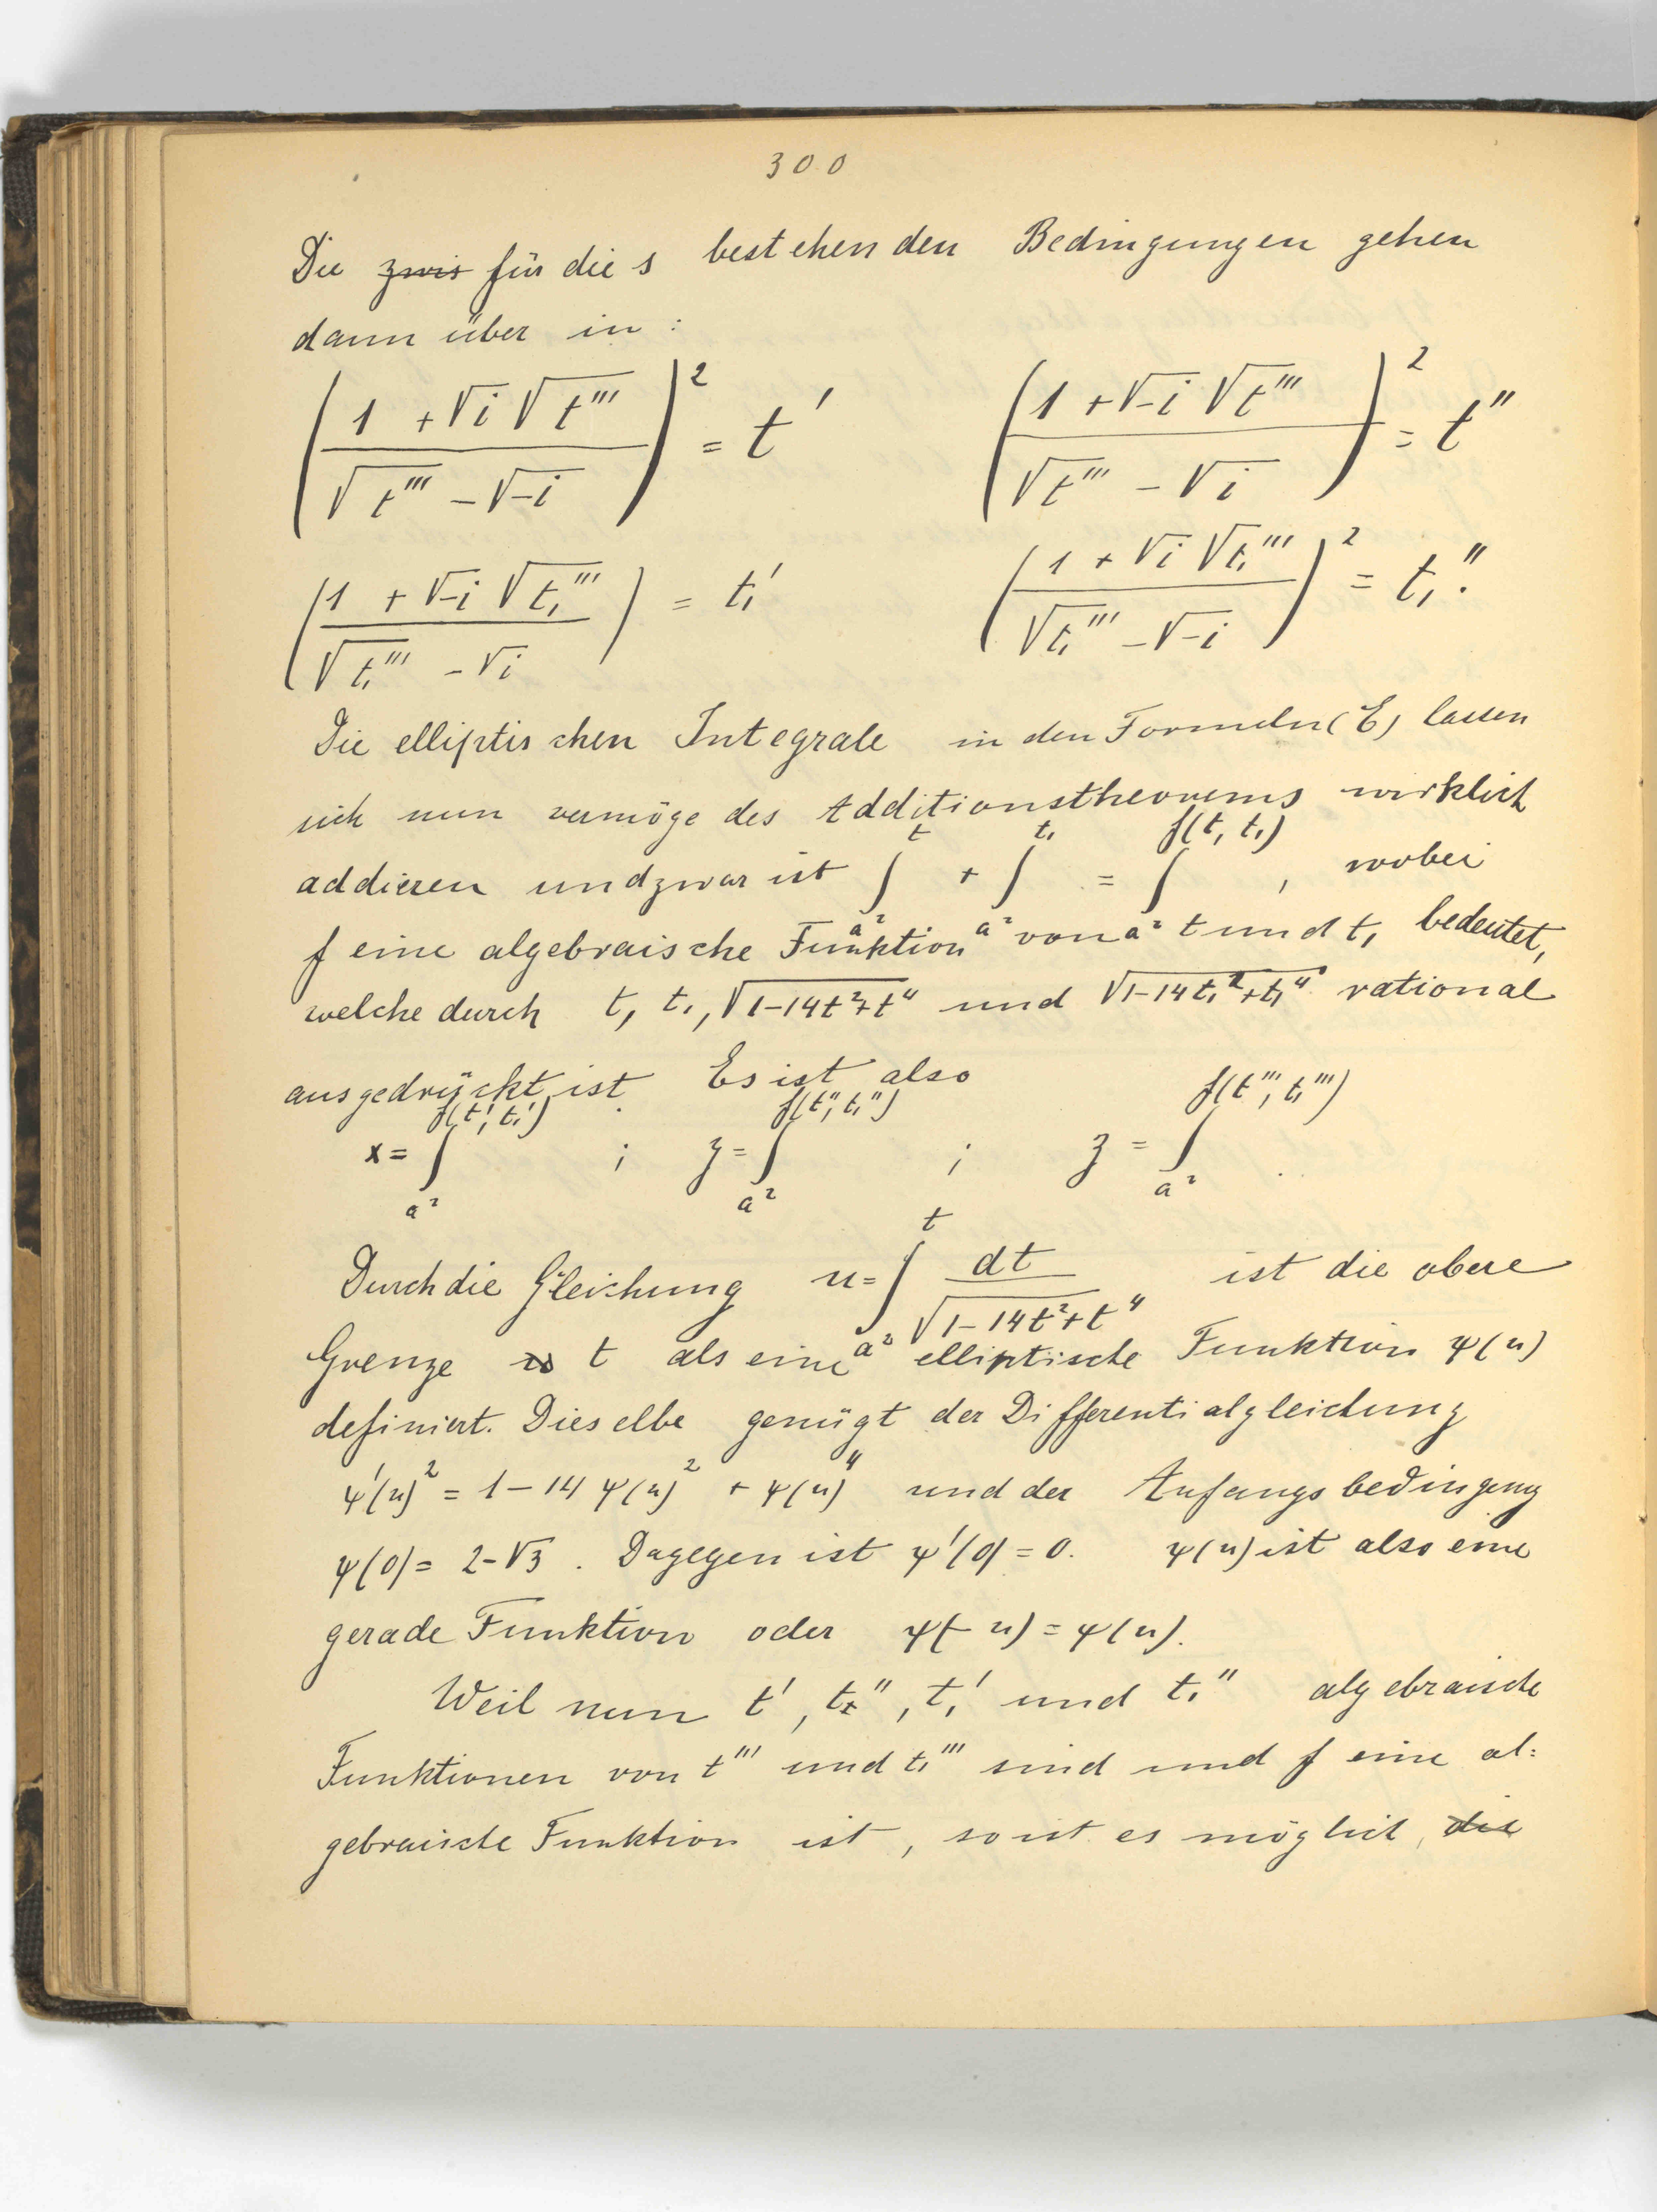 300
Die zwis für die s bestehenden Bedingungen gehen
dann über in :
((1 + √i √t''')/(√t''' − √−i))² = t'    ((1 + √−i √t''')/(√t''' − √i))² = t''
((1 + √−i √t₁''')/(√t₁''' − √i)) = t₁'    ((1 + √i √t₁''')/(√t₁''' − √−i))² = t₁''.
Die elliptischen Integrale in den Formeln (E) lassen
sich nun vermöge des Additionstheorems wirklich
addieren und zwar ist ∫_{a²}^{t} + ∫_{a²}^{t₁} = ∫_{a²}^{f(t, t₁)} , wobei
f eine algebraische Funktion von t und t₁ bedeutet,
welche durch t, t₁, √(1−14t²+t⁴) und √(1−14t₁²+t₁⁴) rational
ausgedrückt ist. Es ist also
x = ∫_{a²}^{f(t', t₁')} ; y = ∫_{a²}^{f(t'', t₁'')} ; z = ∫_{a²}^{f(t''', t₁''')} .
Durch die Gleichung u = ∫_{a²}^{t} dt/√(1−14t²+t⁴) ist die obere
Grenze t als eine elliptische Funktion ψ(u)
definiert. Dieselbe genügt der Differentialgleichung
ψ'(u)² = 1−14 ψ(u)² + ψ(u)⁴ und der Anfangsbedingung
ψ(0) = 2−√3 . Dagegen ist ψ'(0) = 0. ψ(u) ist also eine
gerade Funktion oder ψ(−u) = ψ(u).
Weil nun t', t'', t₁' und t₁'' algebraische
Funktionen von t''' und t₁''' sind und f eine al=
gebraische Funktion ist, so ist es möglich, die